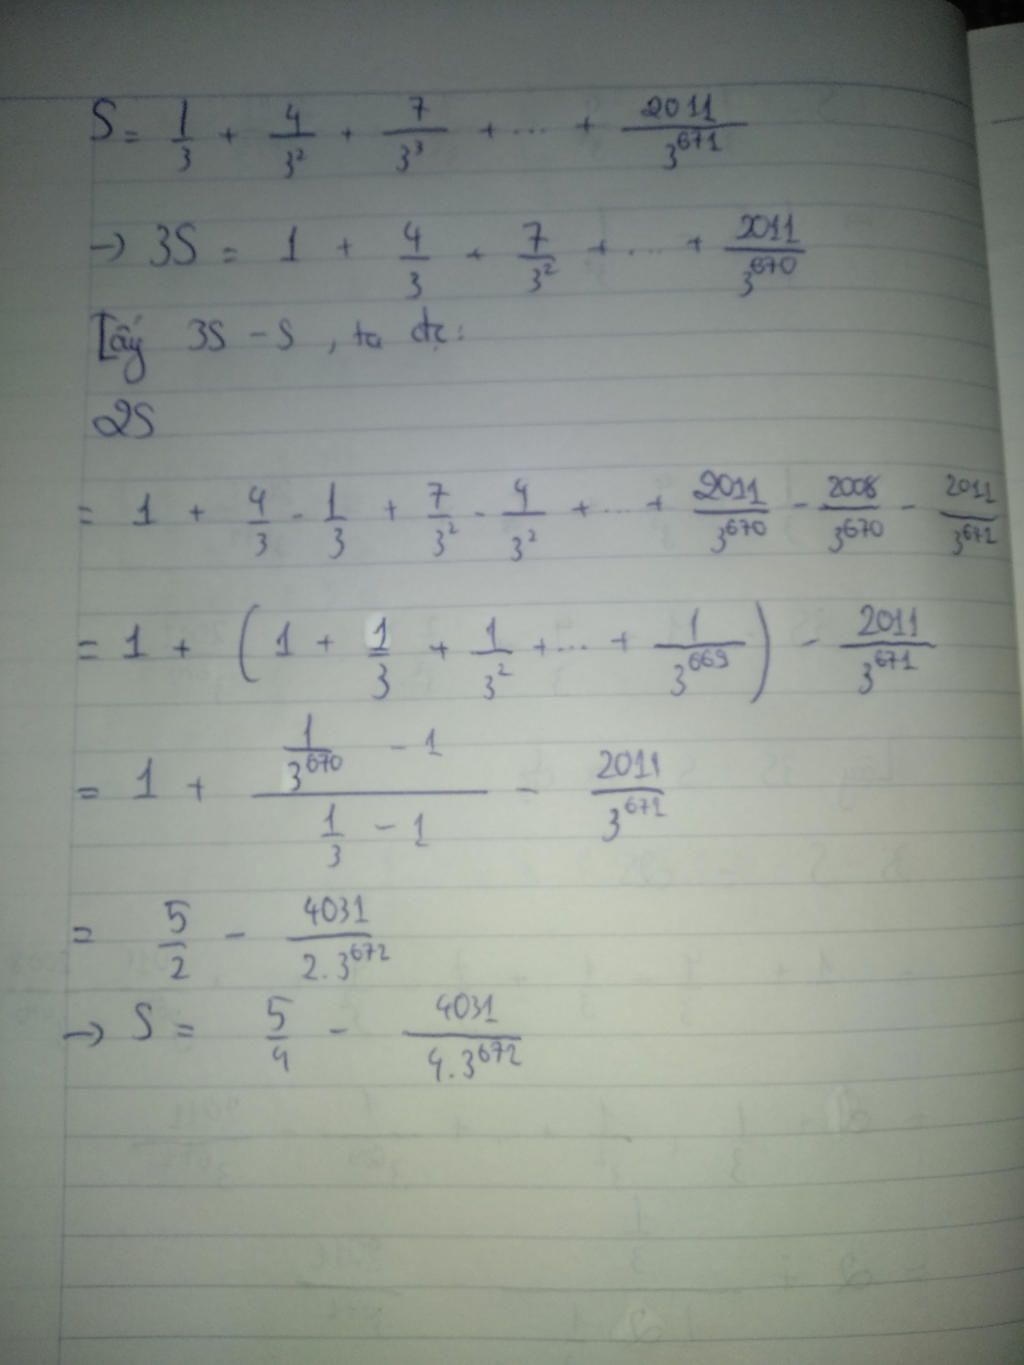 S = 1/3 + 4/3² + 7/3³ + ... + 2011/3^671
→ 3S = 1 + 4/3 + 7/3² + ... + 2011/3^670
Lấy 3S - S, ta đc:
2S
= 1 + 4/3 - 1/3 + 7/3² - 4/3² + ... + 2011/3^670 - 2008/3^670 - 2011/3^671
= 1 + (1 + 1/3 + 1/3² + ... + 1/3^669) - 2011/3^671
= 1 + (1/3^670 - 1)/(1/3 - 1) - 2011/3^671
= 5/2 - 4031/(2.3^672)
→ S = 5/4 - 4031/(4.3^672)